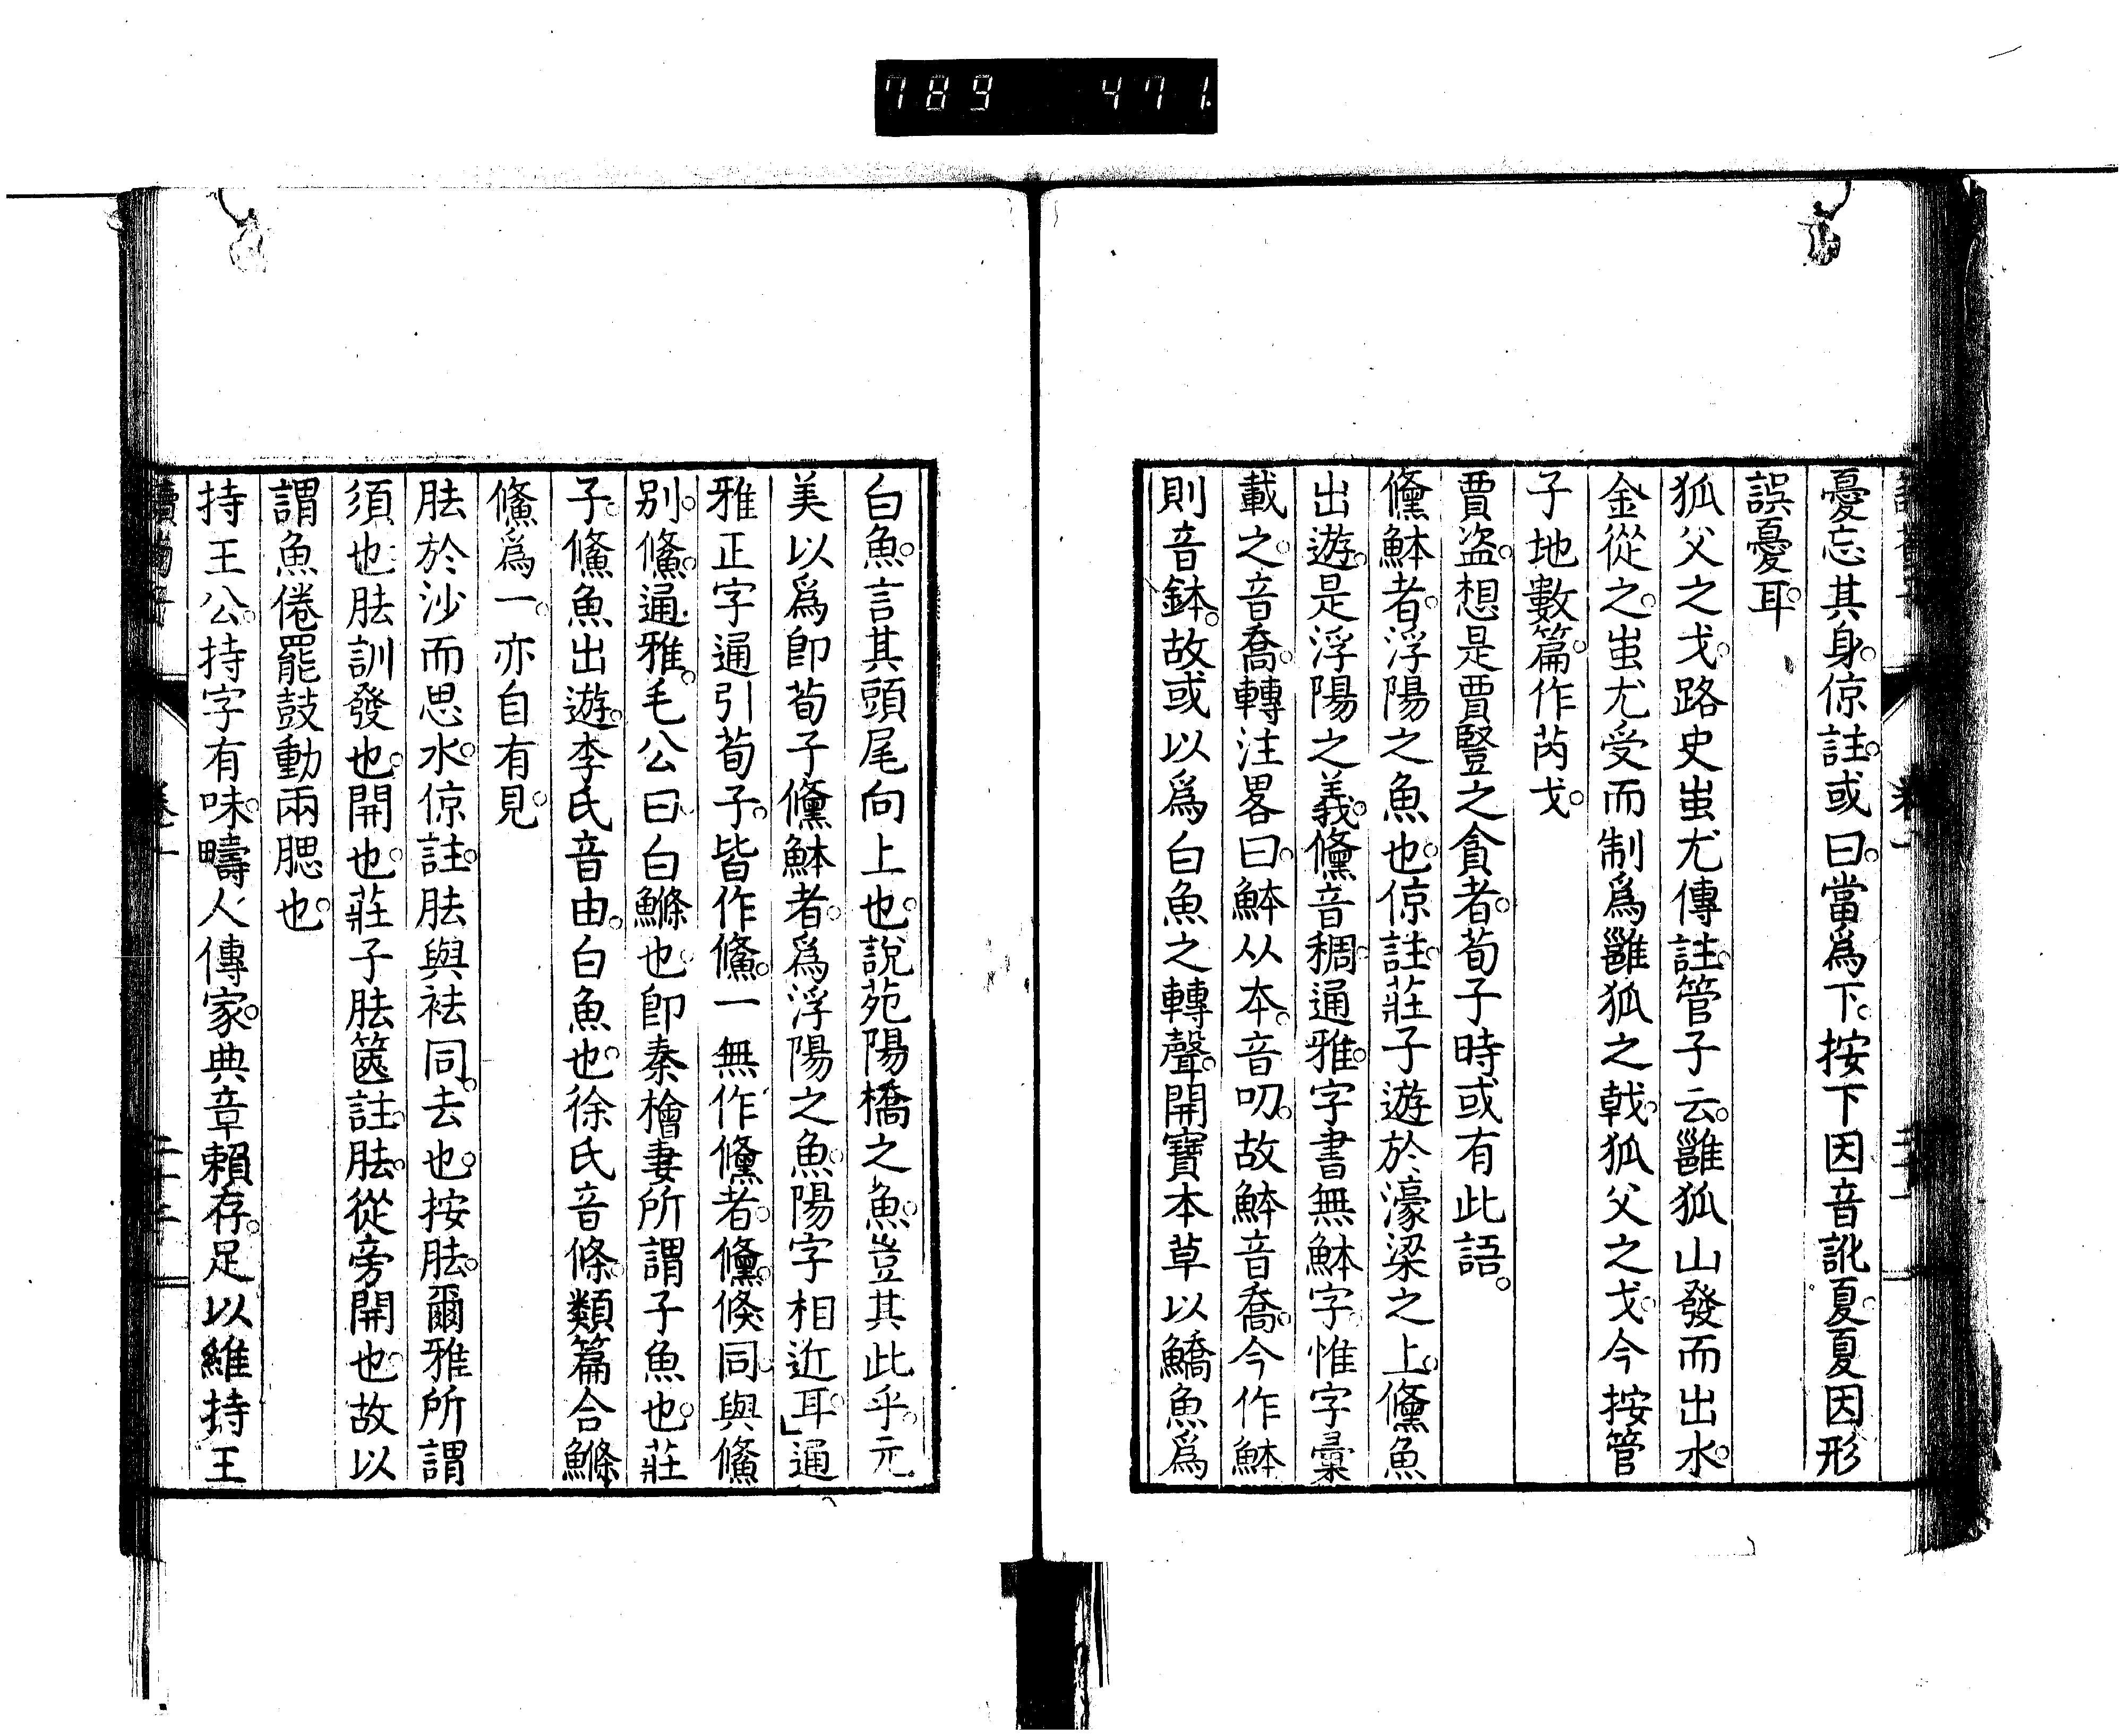 789 471.
憂忘其身。倞註。或曰。當爲下。按下因音訛夏。夏因形
誤憂耳。
狐父之戈。路史蚩尤傳註。管子云。雝狐山發而出水。
金從之。蚩尤受而制爲雝狐之戟。狐父之戈。今按管
子地數篇。作芮戈。
賈盜。想是賈豎之貪者。荀子時或有此語。
儵䱁者。浮陽之魚也。倞註。莊子遊於濠梁之上。儵魚
出遊。是浮陽之義。儵音稠。通雅。字書無䱁字。惟字彙
載之。音喬。轉注畧曰。䱁从夲。音叨。故䱁音喬。今作䱁
則音鉢。故或以爲白魚之轉聲。開寶本草以鱎魚爲
白魚。言其頭尾向上也。說苑陽橋之魚。豈其此乎。元
美以爲卽荀子儵䱁者。爲浮陽之魚。陽字相近耳。」通
雅正字通引荀子。皆作鯈。一無作儵者。儵。倏同。與鯈
别。鯈。通雅。毛公曰白鰷也。卽秦檜妻所謂子魚也。莊
子。鯈魚出遊。李氏音由。白魚也。徐氏音條。類篇合鰷
鯈爲一。亦自有見。
胠於沙而思水。倞註。胠與袪同。去也。按胠。爾雅所謂
須也。胠訓發也。開也。莊子胠篋註。胠。從旁開也。故以
謂魚倦罷鼓動兩腮也。
持王公。持字有味。疇人傳家。典章賴存。足以維持王